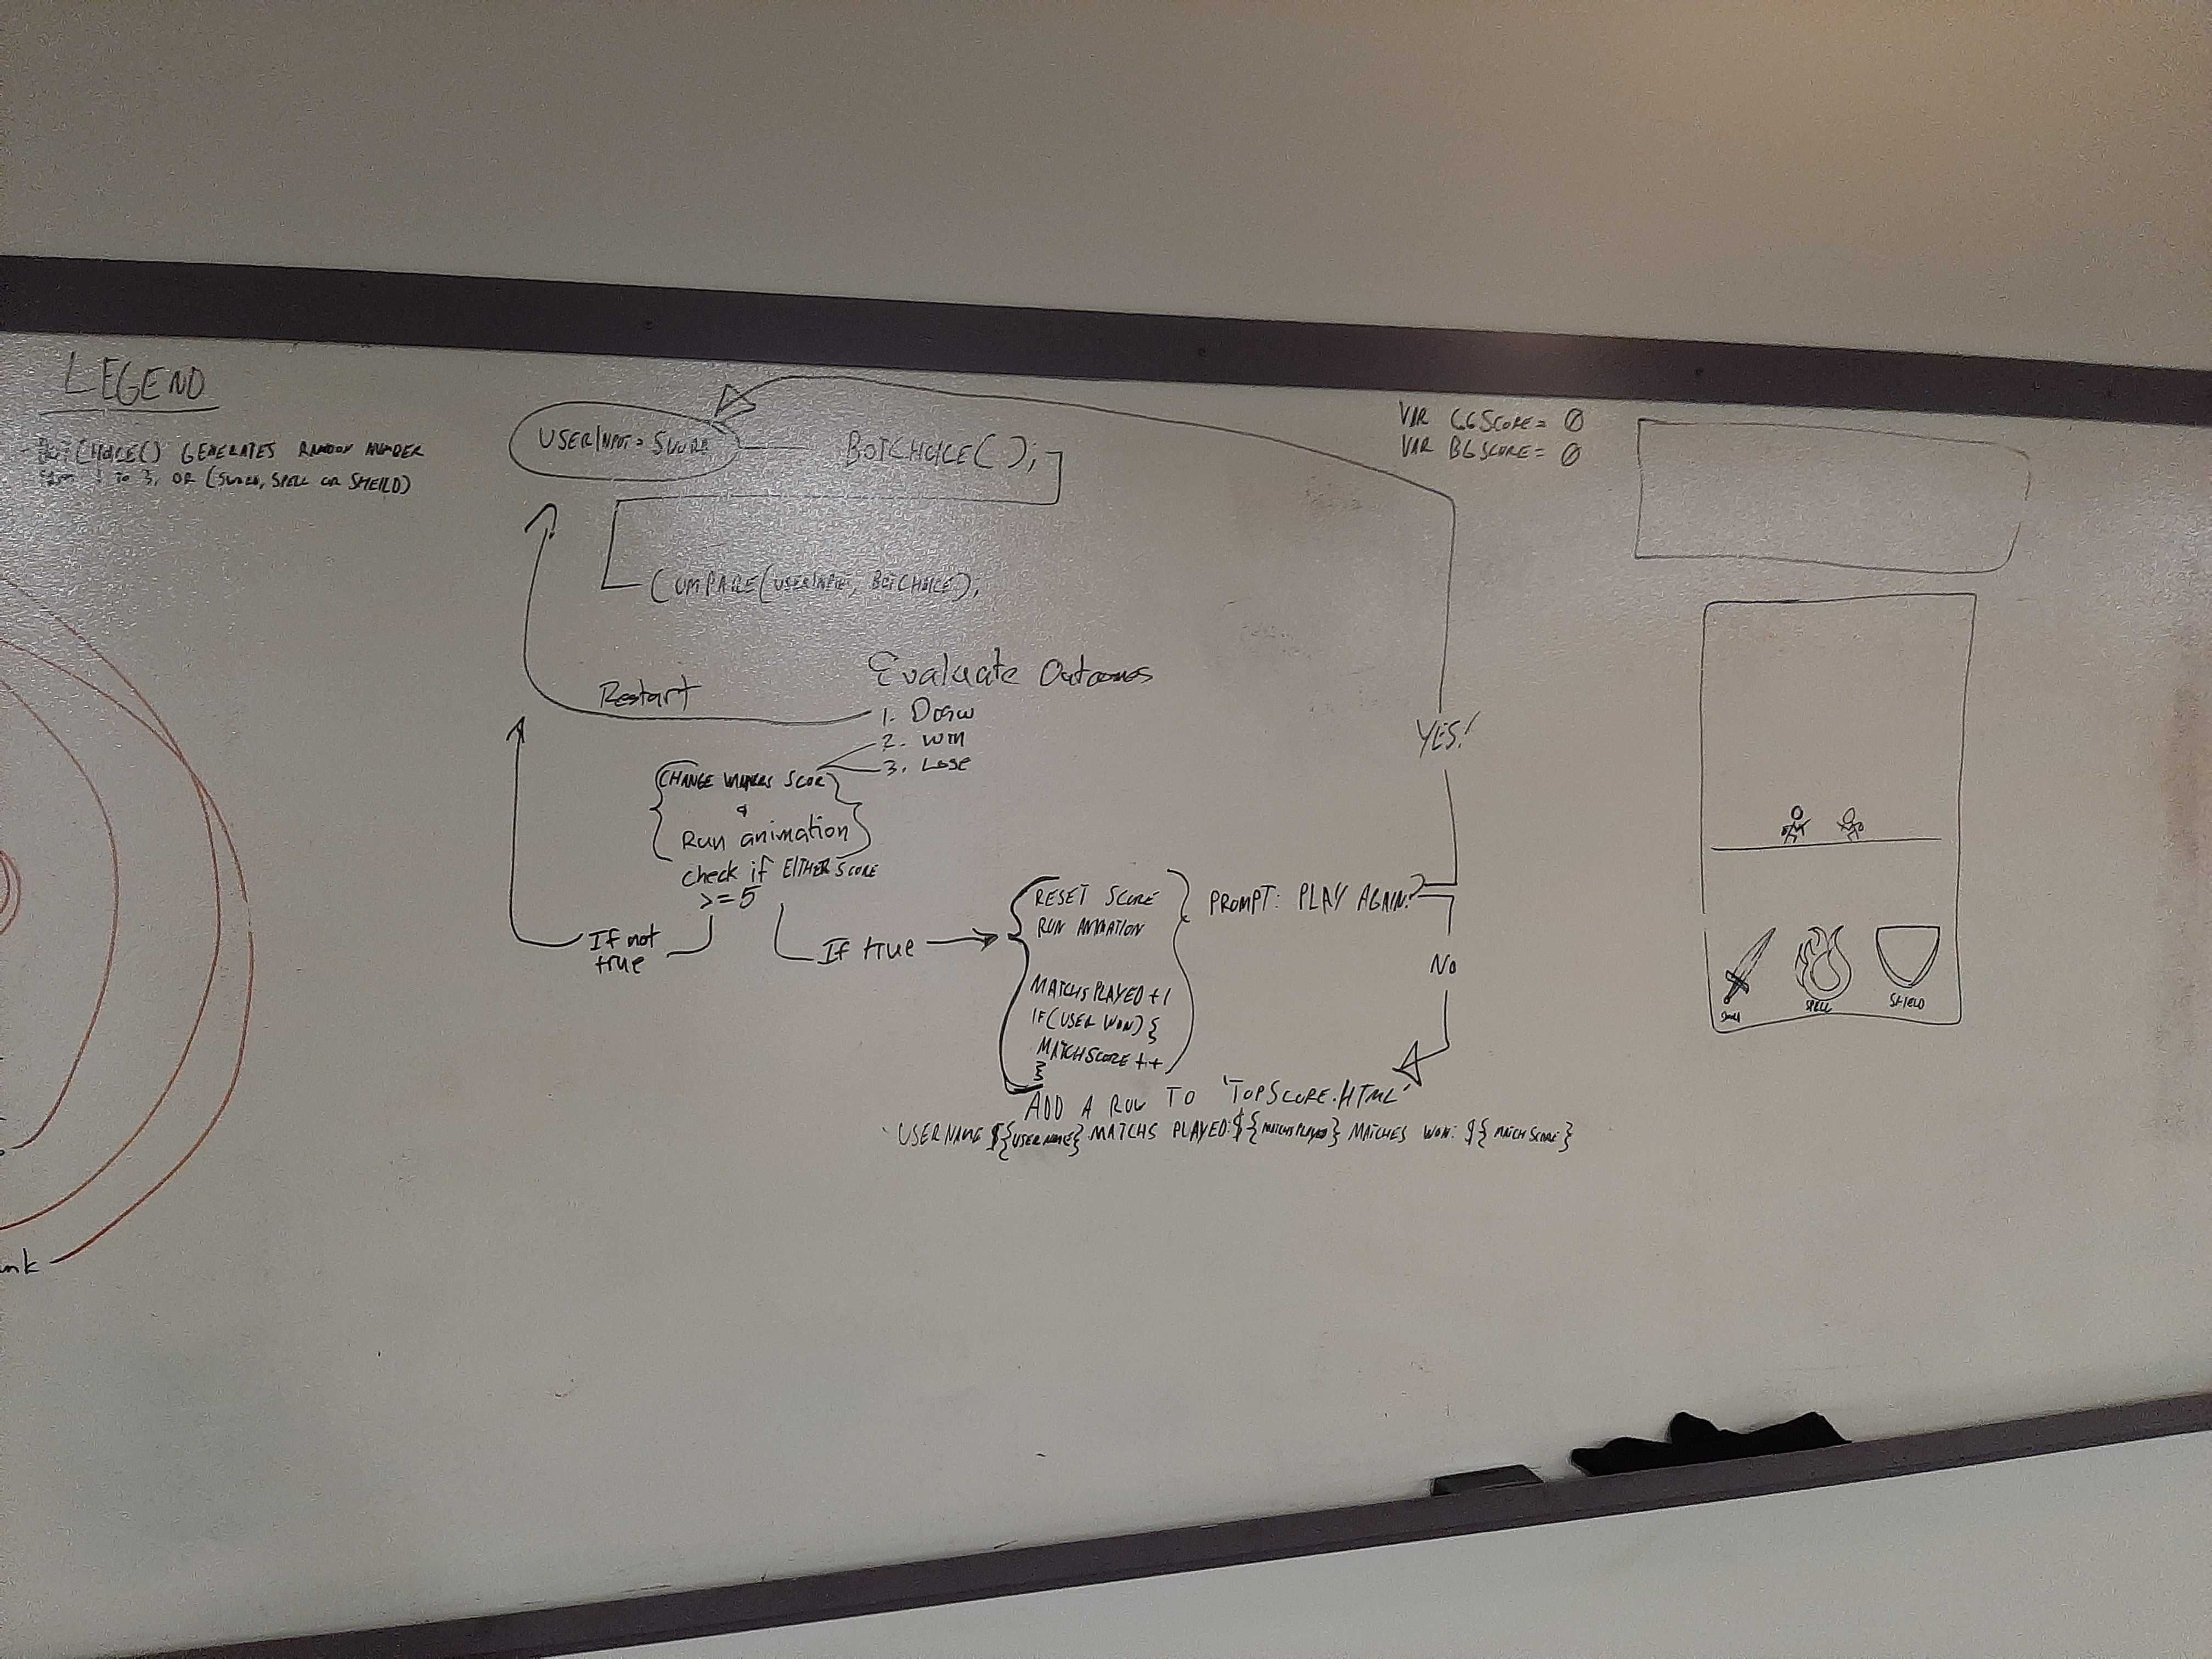 LEGEND
BOTCHOICE() GENERATES RANDOM NUMBER
FROM 1 TO 3, OR (SWORD, SPELL OR SHEILD)
USERINPUT = SWORD
BOTCHOICE();
COMPARE(USERINPUT, BOTCHOICE);
Evaluate Outcomes
Restart
1. Draw
2. Win
3. Lose
CHANGE WINNERS SCORE
&
Run animation
check if EITHER SCORE
>=5
If not
true
If true
RESET SCORE
RUN ANIMATION
MATCHSPLAYED +1
IF(USER WON) {
MATCHSCORE ++
}
PROMPT: PLAY AGAIN?
YES!
NO
ADD A ROW TO 'TOPSCORE.HTML'
USERNAME ${USERNAME} MATCHS PLAYED: ${MATCHSPLAYED} MATCHES WON: ${MATCHSCORE}
VAR GGSCORE = 0
VAR BGSCORE = 0
SPELL
SHIELD